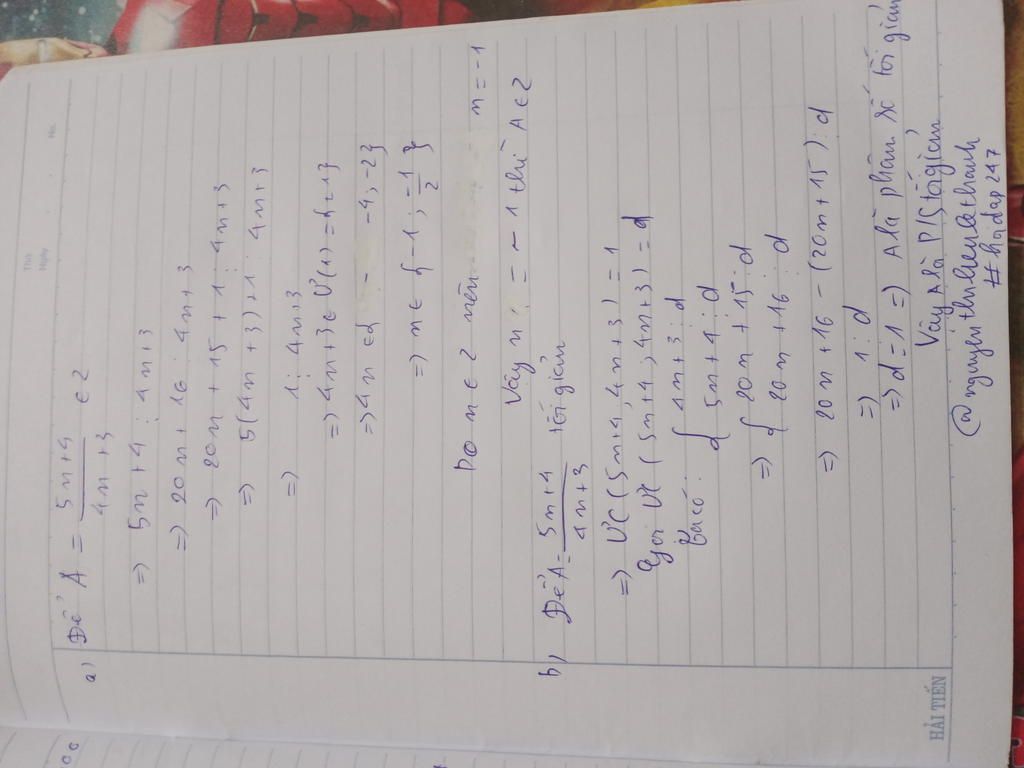 Thứ
Ngày
No.
a) Để A = \frac{5n+4}{4n+3} ∈ Z
=> 5n+4 ⋮ 4n+3
=> 20n+16 ⋮ 4n+3
=> 20n+15+1 ⋮ 4n+3
=> 5(4n+3)+1 ⋮ 4n+3
=> 1 ⋮ 4n+3
=> 4n+3 ∈ Ư(1) = {-1}
=> 4n ∈ { -4; -2}
=> n ∈ {-1; \frac{-1}{2}}
Do n ∈ Z nên n = -1
Vậy n = -1 thì A ∈ Z
b) Để A = \frac{5n+4}{4n+3} tối giản
=> ƯC(5n+4, 4n+3) = 1
Gọi ƯC(5n+4; 4n+3) = d
Ta có: { 4n+3 ⋮ d
5n+4 ⋮ d
=> { 20n+15 ⋮ d
20n+16 ⋮ d
=> 20n+16 - (20n+15) ⋮ d
=> 1 ⋮ d
=> d = 1 => A là phân số tối giản
Vậy A là P/S tối giản
@nguyenthihienlethanh
#hoidap247
HẢI TIẾN